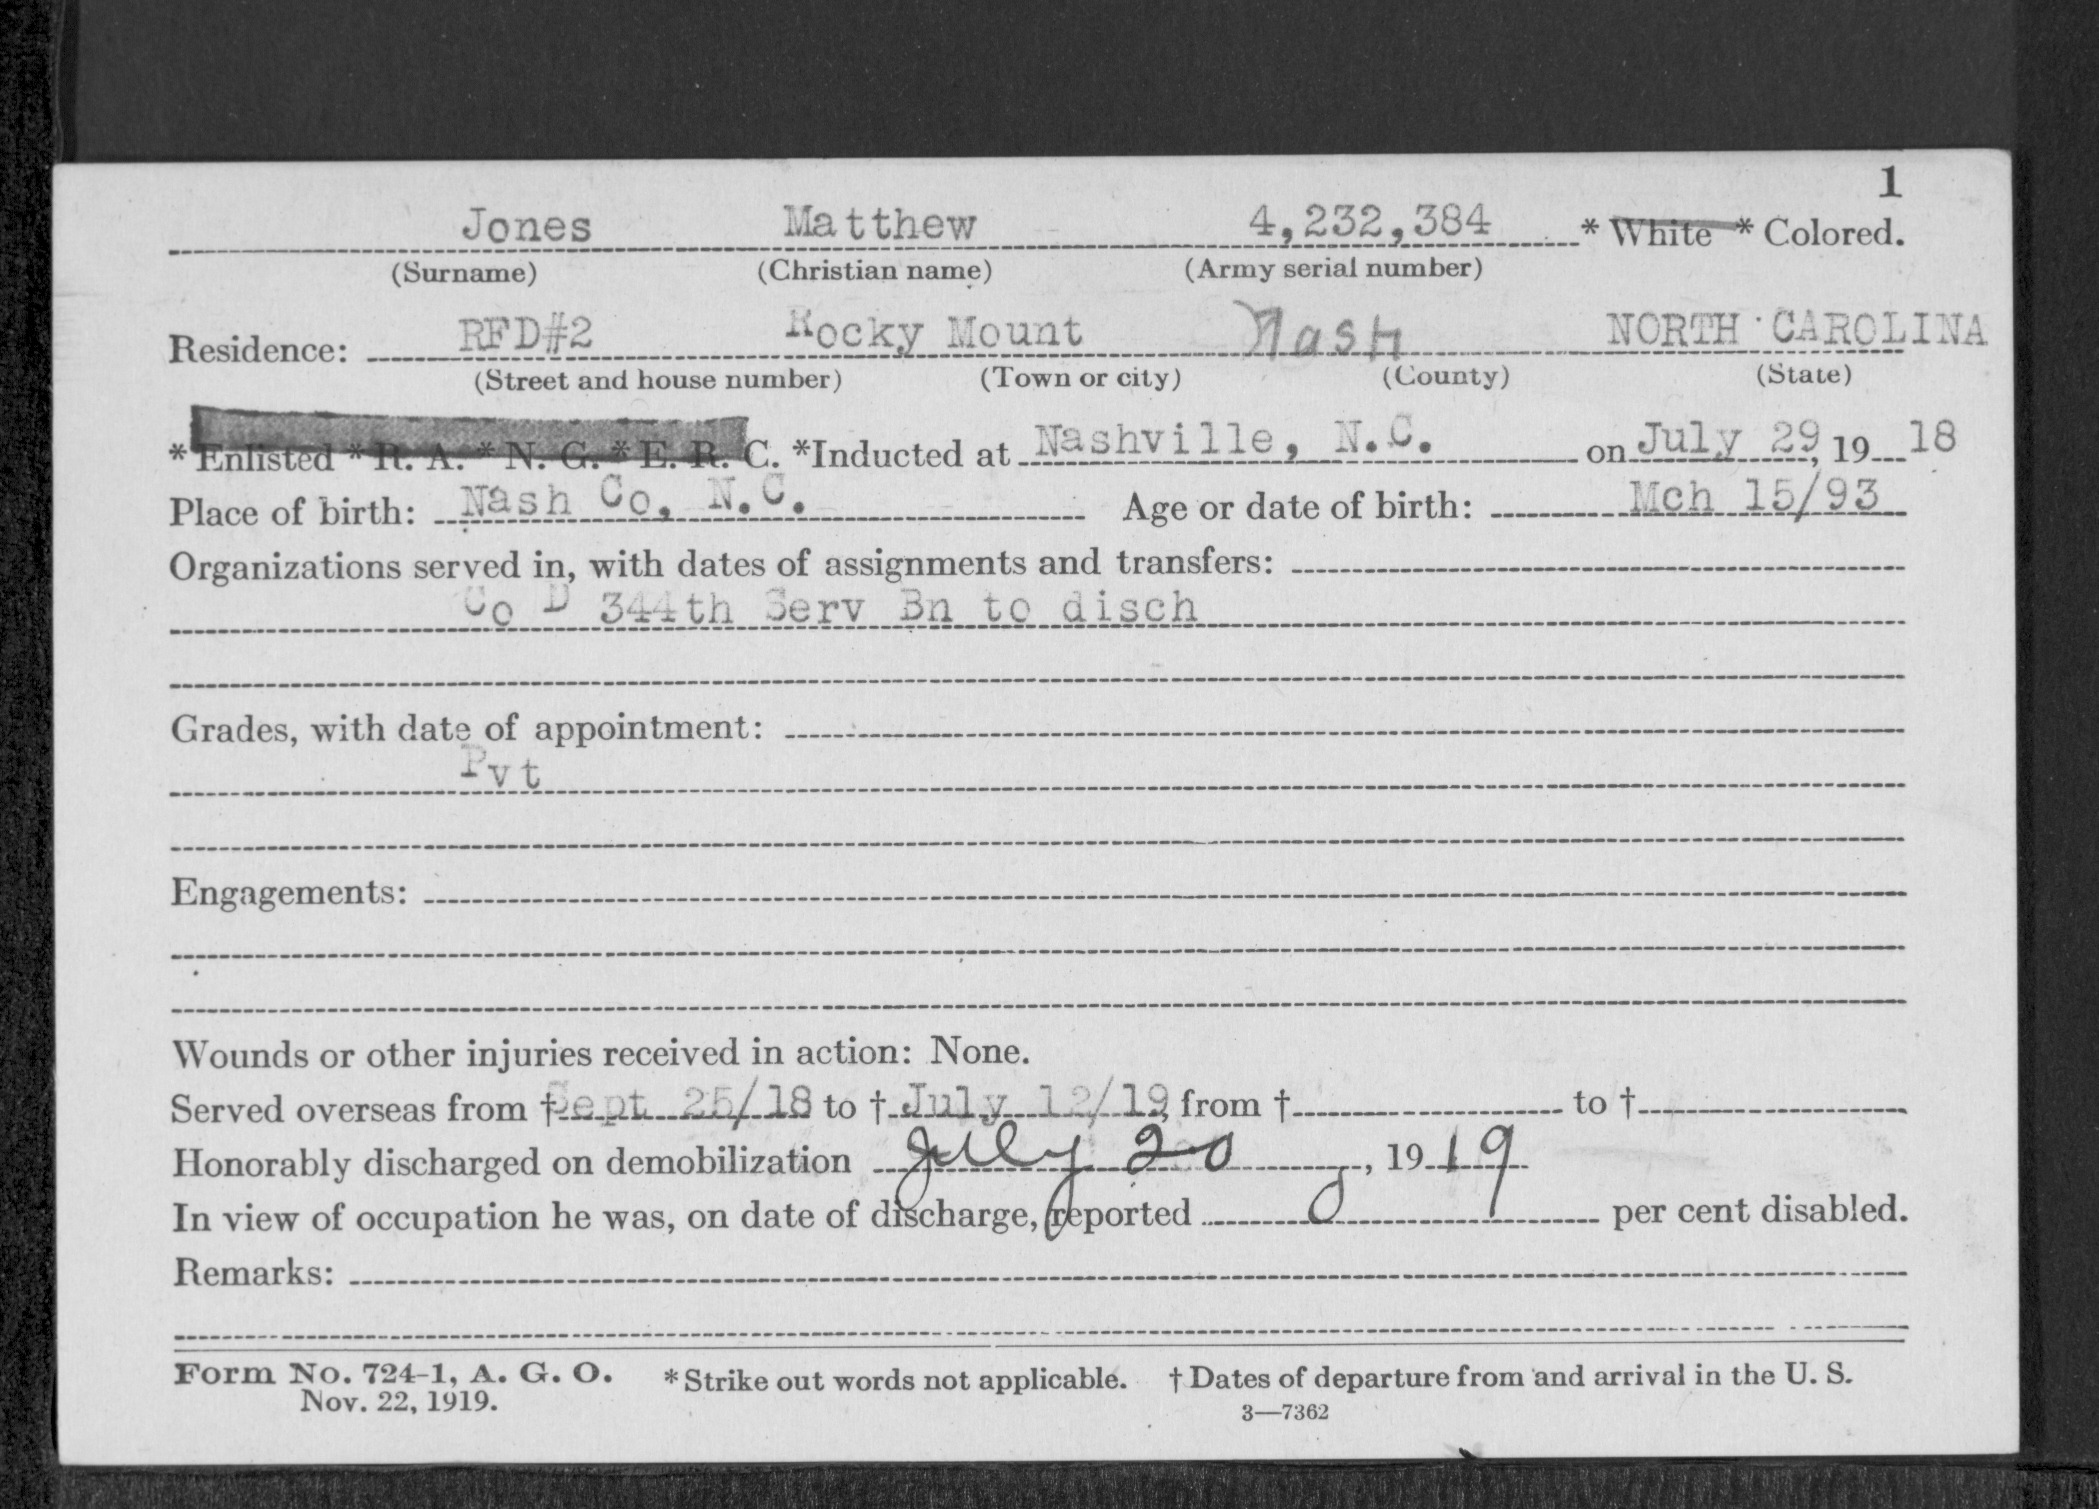 1
Jones Matthew 4,232,384 * White * Colored.
(Surname) (Christian name) (Army serial number)
Residence: RFD#2 Rocky Mount Nash NORTH CAROLINA
(Street and house number) (Town or city) (County) (State)
* Enlisted * R. A. * N. G. * E. R. C. *Inducted at Nashville, N.C. on July 29, 19 18
Place of birth: Nash Co, N.C. Age or date of birth: Mch 15/93
Organizations served in, with dates of assignments and transfers:
Co D 344th Serv Bn to disch
Grades, with date of appointment:
Pvt
Engagements:
Wounds or other injuries received in action: None.
Served overseas from † Sept 25/18 to † July 12/19, from † to †
Honorably discharged on demobilization July 20, 1919
In view of occupation he was, on date of discharge, reported 0 per cent disabled.
Remarks:
Form No. 724-1, A. G. O. * Strike out words not applicable. † Dates of departure from and arrival in the U. S.
Nov. 22, 1919. 3—7362